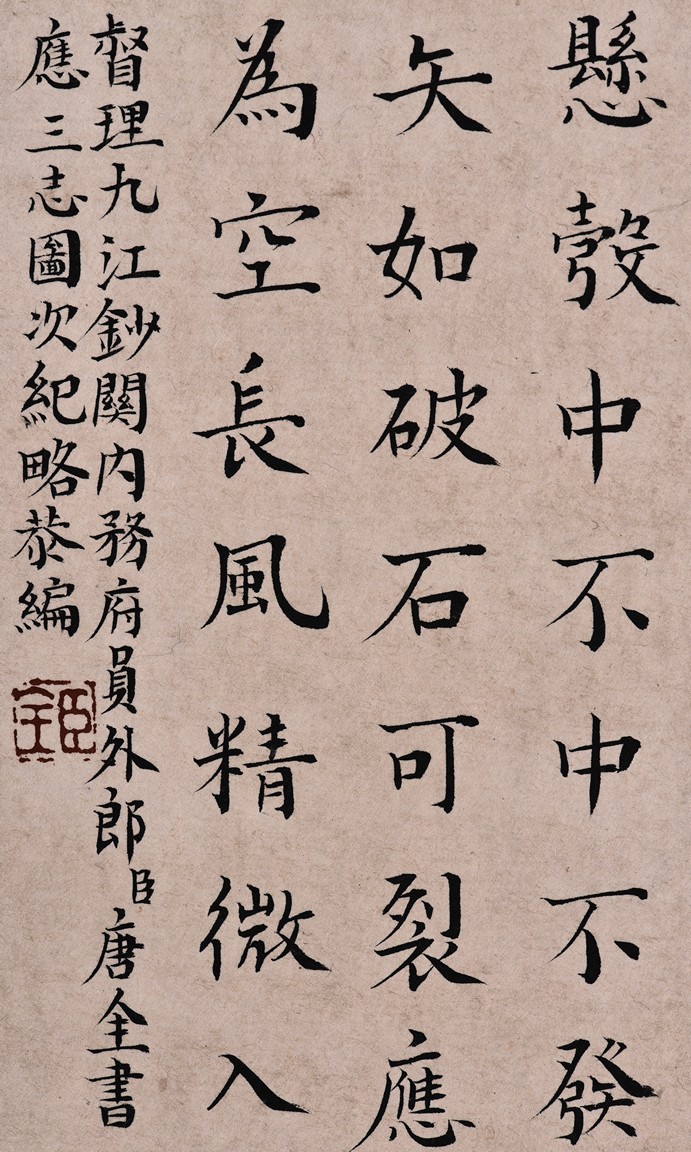 懸彀中不中不發
矢如破石可裂應
為空長風精微入
督理九江鈔關內務府員外郎臣唐全書
應三志圖次紀略恭編
臣全